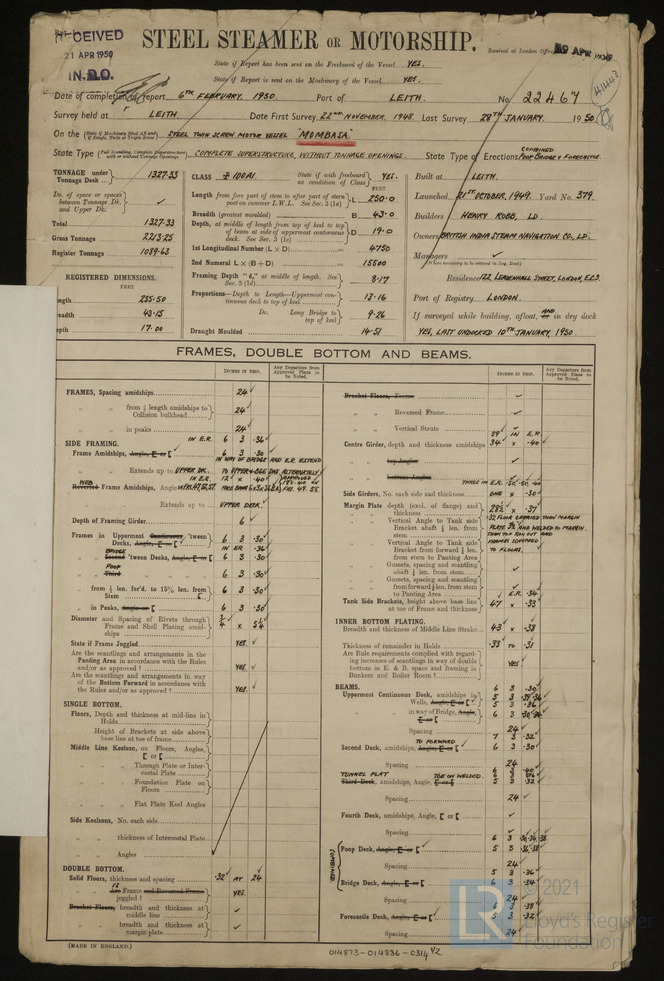 RECEIVED
21 APR 1950
IN D.O.
STEEL STEAMER OR MOTORSHIP.
Received at London Office
State if Report has been sent on the Freeboard of the Vessel YES.
State if Report is sent on the Machinery of the Vessel YES.
Date of completion of report 6TH FEBRUARY, 1950. Port of LEITH. No. 22464
Survey held at LEITH. Date First Survey 22ND NOVEMBER, 1948. Last Survey 28TH JANUARY, 1950
On the STEEL TWIN SCREW MOTOR VESSEL "MOMBASA"
State Type COMPLETE SUPERSTRUCTURE, WITHOUT TONNAGE OPENINGS. State Type of Erections COMBINED POOP BRIDGE & FORECASTLE.
TONNAGE under Tonnage Deck ... 1327.33
Do. of space or spaces between Tonnage Dk. and Upper Dk.
Total 1327.33
Gross Tonnage 2213.25
Register Tonnage 1089.63
REGISTERED DIMENSIONS.
FEET
Length 255.50
Breadth 43.15
Depth 17.00
CLASS 100A1 State if with freeboard as condition of Class YES.
FEET
Length from fore part of stem to after part of stern post on summer L.W.L. See Sec. 3 (1a) L 250.0
Breadth (greatest moulded) B 43.0
Depth, at middle of length from top of keel to top of beam at side of uppermost continuous deck. See Sec. 3 (1c) D 19.0
1st Longitudinal Number (L × D) 4750
2nd Numeral L × (B + D) 15500
Framing Depth "d," at middle of length. See Sec. 3 (1d) 8.17
Proportions—Depth to Length—Uppermost continuous deck to top of keel 13.16
Do. Long Bridge to top of keel 9.26
Draught Moulded 14.51
Built at LEITH.
Launched 21ST OCTOBER, 1949. Yard No. 379.
Builders HENRY ROBB, LD.
Owners BRITISH INDIA STEAM NAVIGATION CO., LD.
Managers
(Where necessary to be entered in Reg. Book)
Residence 122, LEADENHALL STREET, LONDON, E.C.3.
Port of Registry LONDON.
If surveyed while building, afloat, AND in dry dock
YES, LAST UNDOCKED 10TH JANUARY, 1950.
FRAMES, DOUBLE BOTTOM AND BEAMS.
INCHES IN SHIP.
Any Departure from Approved Plans to be Noted.
FRAMES, Spacing amidships 24
from ⅕ length amidships to Collision bulkhead 24
in peaks 24
SIDE FRAMING. IN E.R. 6 3 .36
Frame Amidships, Angle, E or [ 6 3 .30
Extends up to UPPER DK.
WEB Reversed Frames Amidships, Angle
Extends up to UPPER DECK
Depth of Framing Girder 6
Frames in Uppermost Continuous 'tween Decks, Angle, E or [ 6 3 .30
BRIDGE Second 'tween Decks, Angle, E or [ 6 3 .30
POOP Third 6 3 .30
from ⅕ len. for'd. to 15% len. from Stem 6 3 .30
in Peaks, Angle or [ 6 3 .30
Diameter and Spacing of Rivets through Frame and Shell Plating amidships ¾ × 5¼
State if Frame Joggled YES.
Are the scantlings and arrangements in the Panting Area in accordance with the Rules and/or as approved ? YES
Are the scantlings and arrangements in way of the Bottom Forward in accordance with the Rules and/or as approved ? YES.
SINGLE BOTTOM.
Floors, Depth and thickness at mid-line in Holds
Height of Brackets at side above base line at toe of frame
Middle Line Keelson, on Floors, Angles, E or [
Through Plate or Intercostal Plate
Foundation Plate on Floors
Flat Plate Keel Angles
Side Keelsons, No. each side
thickness of Intercostal Plate
Angles
DOUBLE BOTTOM.
Solid Floors, thickness and spacing .32 AT 24
Is Frame and Reversed Frame joggled ? YES.
Bracket Floors, breadth and thickness at middle line
breadth and thickness at margin plate
Bracket Floors, Frame
Reversed Frame
Vertical Strut
Centre Girder, depth and thickness amidships 34 × .40
top Angles
bottom Angles
Side Girders, No. each side and thickness ONE × .30
Margin Plate depth (excl. of flange) and thickness
Vertical Angle to Tank side Bracket abaft ¼ len. from stem
Vertical Angle to Tank side Bracket from forward ¼ len. from stem to Panting Area
Gussets, spacing and scantling abaft ¼ len. from stem
Gussets, spacing and scantling from forward ¼ len. from stem to Panting Area
Tank Side Brackets, height above base line at toe of Frame and thickness 47 × .33
INNER BOTTOM PLATING.
Breadth and thickness of Middle Line Strake 43 × .38
Thickness of remainder in Holds .33 TO .31
Are Rule requirements complied with regarding increases of scantlings in way of double bottom in E. & B. space and framing in Bunkers and Boiler Room ? YES
BEAMS.
Uppermost Continuous Deck, amidships in Wells, Angle, E or [
in way of Bridge, Angle, E or [
Spacing 24
Second Deck, amidships, Angle, E or [ 6 3 .30
Spacing 24
TUNNEL FLAT TOE ON WELDED.
Third Deck, amidships, Angle, E or [ 5 3 .32
Spacing 24
Fourth Deck, amidships, Angle, E or [
Spacing
COMBINED
Poop Deck, Angle, E or [
Spacing 24
Bridge Deck, Angle, E or [ 6 3 .34
Spacing 24
Forecastle Deck, Angle, E or [ 5 3 .32
Spacing 24
(MADE IN ENGLAND.)
014873-014886-0314 1/2
LR
© 2021
Lloyd's Register
Foundation